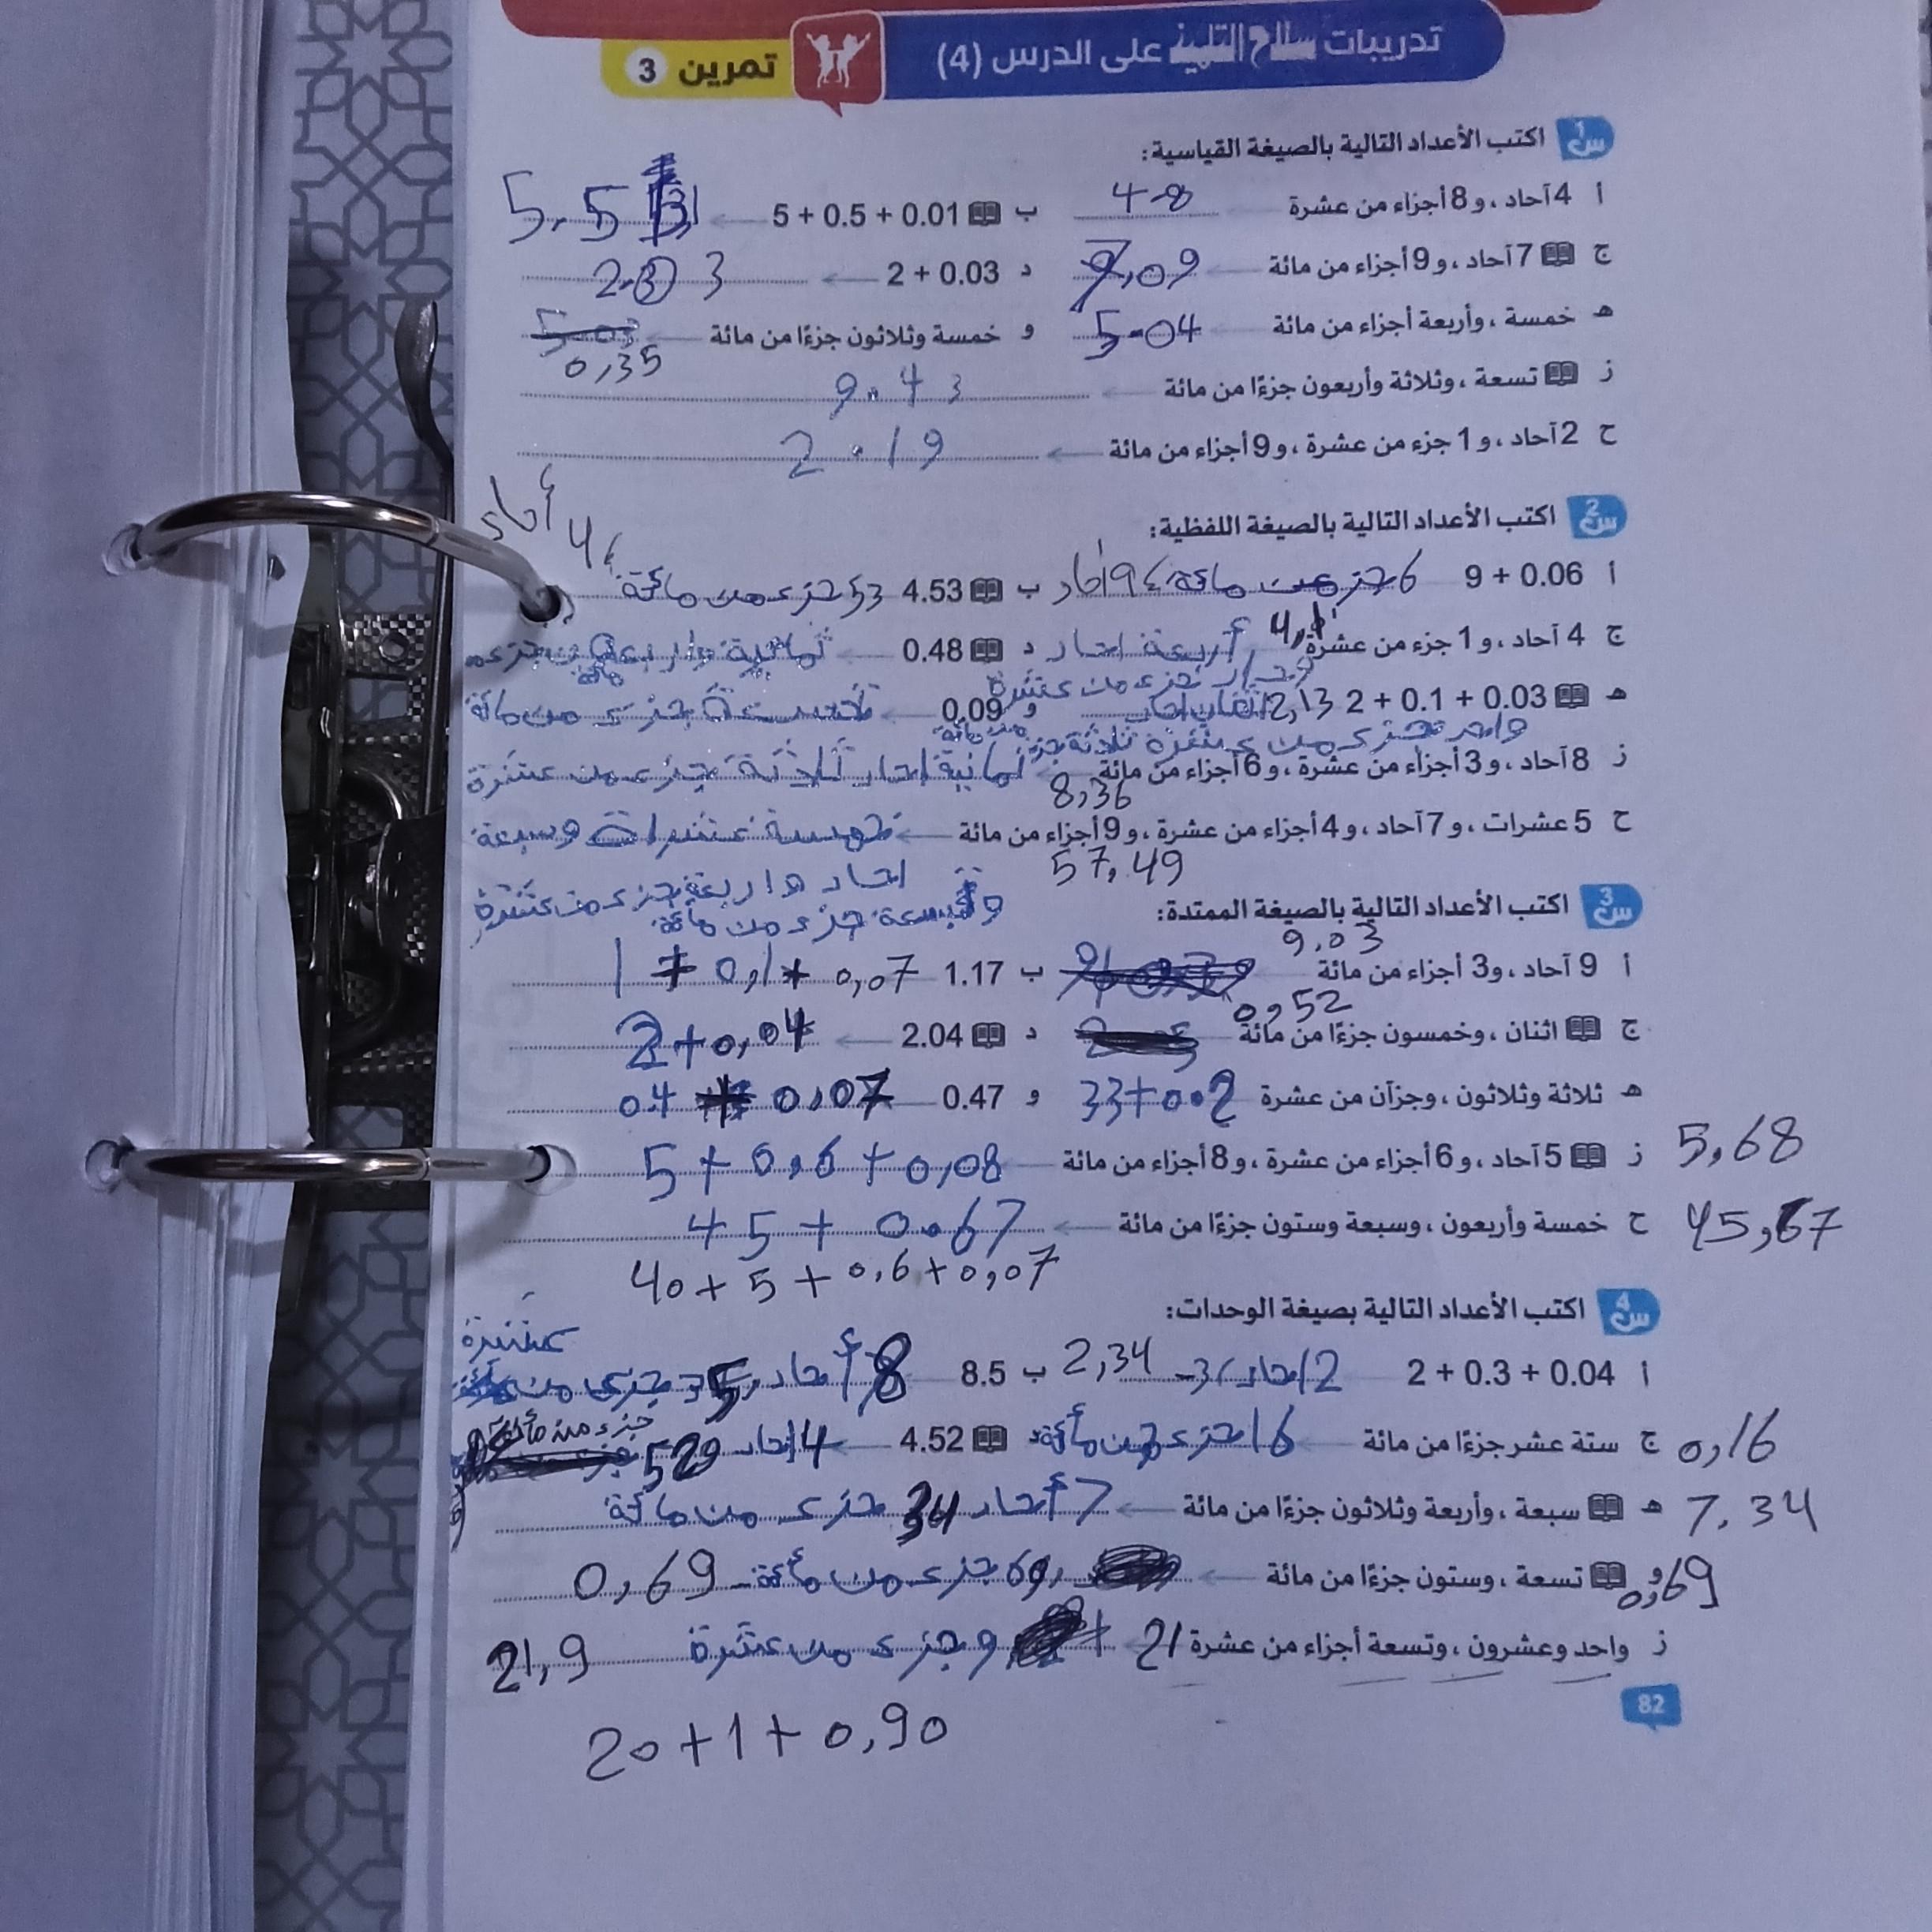 تدريبات سلاح التلميذ على الدرس (4) تمرين 3
س1 اكتب الأعداد التالية بالصيغة القياسية:
أ 4 آحاد ، و 8 أجزاء من عشرة 4.8 ب 5 + 0.5 + 0.01 5.51
ج 7 آحاد ، و 9 أجزاء من مائة 7,09 د 2 + 0.03 2.03
هـ خمسة ، وأربعة أجزاء من مائة 5.04 و خمسة وثلاثون جزءًا من مائة
0,35
ز تسعة ، وثلاثة وأربعون جزءًا من مائة 9.43
ح 2 آحاد ، و 1 جزء من عشرة ، و 9 أجزاء من مائة 2.19
س2 اكتب الأعداد التالية بالصيغة اللفظية:
أ 9 + 0.06 6 جزء من مائة 9 أحاد ب 4.53 53 جزء من مائة 4 أحاد
ج 4 آحاد ، و 1 جزء من عشرة 4,1 أربعة احاد د 0.48 ثمانية واربعون جزء من مائة
جزء من عشرة
هـ 2 + 0.1 + 0.03 2,13 اثنان احاد و 0.09 تسعة جزء من مائة
واحد جزء من عشرة ثلاثة جزء من مائة
ز 8 آحاد ، و 3 أجزاء من عشرة ، و 6 أجزاء من مائة ثمانية احاد ثلاثة جزء من عشرة
8,36
ح 5 عشرات ، و 7 آحاد ، و 4 أجزاء من عشرة ، و 9 أجزاء من مائة خمسة عشرات وسبعة
57,49 احاد واربعة جزء من عشرة
وتسعة جزء من مائة
س3 اكتب الأعداد التالية بالصيغة الممتدة:
9,03
أ 9 آحاد ، و3 أجزاء من مائة ب 1.17 1 + 0,1 + 0,07
0,52
ج اثنان ، وخمسون جزءًا من مائة د 2.04 2 + 0,04
هـ ثلاثة وثلاثون ، وجزآن من عشرة 33 + 0.2 و 0.47 0.4 + 0,07
5,68 ز 5 آحاد ، و 6 أجزاء من عشرة ، و 8 أجزاء من مائة 5 + 0,6 + 0,08
45,67 ح خمسة وأربعون ، وسبعة وستون جزءًا من مائة 45 + 0.67
40 + 5 + 0,6 + 0,07
س4 اكتب الأعداد التالية بصيغة الوحدات:
أ 2 + 0.3 + 0.04 2 احاد، 3 2,34 ب 8.5 8 أحاد، 5 جزء من عشرة
0,16 ج ستة عشر جزءًا من مائة 16 جزء من مائة د 4.52 4 احاد 52 جزء من مائة
7.34 هـ سبعة ، وأربعة وثلاثون جزءًا من مائة 7 أحاد 34 جزء من مائة
0,69 و تسعة ، وستون جزءًا من مائة 69 جزء من مائة 0,69
ز واحد وعشرون ، وتسعة أجزاء من عشرة 21 9 جزء من عشرة 21,9
82
20 + 1 + 0,90